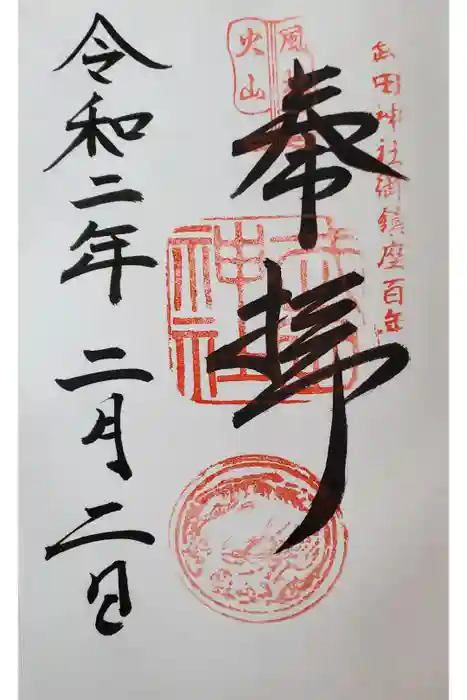 武田神社御鎮座百年
風林
火山
奉拝
武田
神社
令和二年二月二日